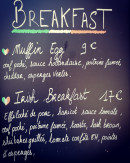 BREAKFAST
Muffin Egg 9€
œuf poché, sauce hollandaise, poitrine fumée,
cheddar, asperges vertes.
Irish Breakfast 17€
Effiloché de porc, haricot sauce tomate,
œuf poché, poitrine fumée, toasts, hash brown,
rhubarbes grillés, tomate confite BIO, pointes
d'asperges.